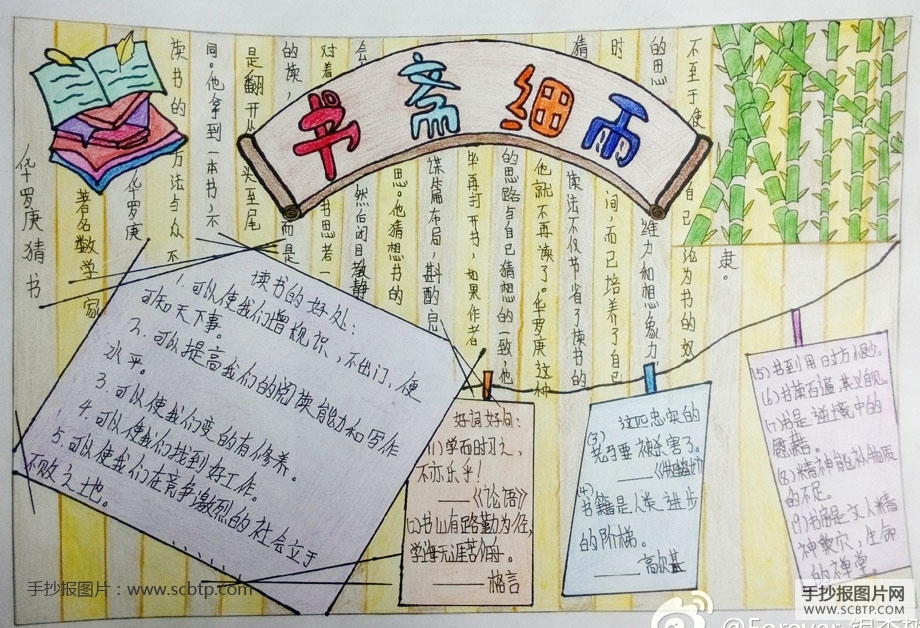 书斋细雨
华罗庚猜书
著名数学家
华罗庚
读书的方法与众不
同。他拿到一本书,不
是翻开从头至尾
的读,而是
对着书思考一
会然后闭目静
思。他猜想书的
谋篇布局,斟酌完
毕再打开书,如果作者
的思路与自己猜想的一致,他
他就不再读了。华罗庚这种
猜读法不仅节省了读书的
时间,而已培养了自己
的思维力和想象力,
不至于使自己沦为书的奴
隶。
读书的好处:
1.可以使我们增规识,不出门,便
可知天下事。
2.可以提高我们的阅读能力和写作
水平。
3.可以使我们变的有修养。
4.可以使我们找到好工作。
5.可以使我们在竞争激烈的社会立于
不败之地。
......
好词好句:
(1)学而时习之,
不亦乐乎!
——《论语》
(2)书山有路勤为径,
学海无涯苦作舟。
——格言
(3) 这四忠实的
先
要被杀害了。
(4)
书籍是人类进步
的阶梯。
——高尔基
(5)书到用时方恨少。
(6)书读百遍其义自见。
(7)书是逆境中的
慰藉。
(8)精神能补物质
的不足。
(9)书房是文人精
神巢穴,生命
的禅堂。
手抄报图片:www.scbtp.com
手抄报图片网
WWW.SCBTP.COM